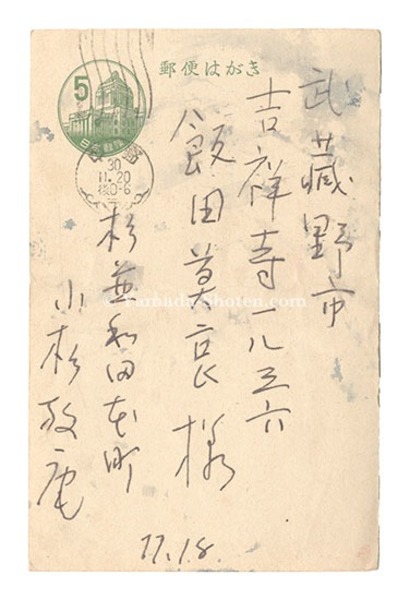 郵便はがき
5
日本郵便
30
11.20
後0-6
武蔵野市
吉祥寺一八三六
飯田莫哀様
杉並和田本町
小杉
11.18.
© Yamada-Shoten.com